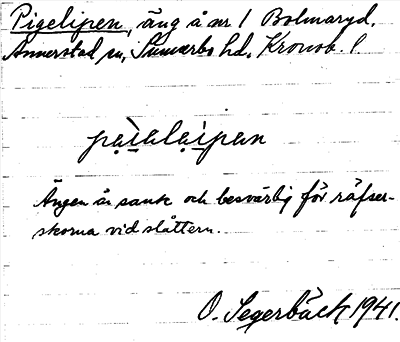 Pigelipen, äng å nr 1 Bolmaryd,
Annerstad sn, Sunnerbo hd, Kronob. l.
pạìꞮalạiꞮpan
Ängen är sank och besvärlig för räfser-
skorna vid slåttern.
O. Segerbäck 1941.